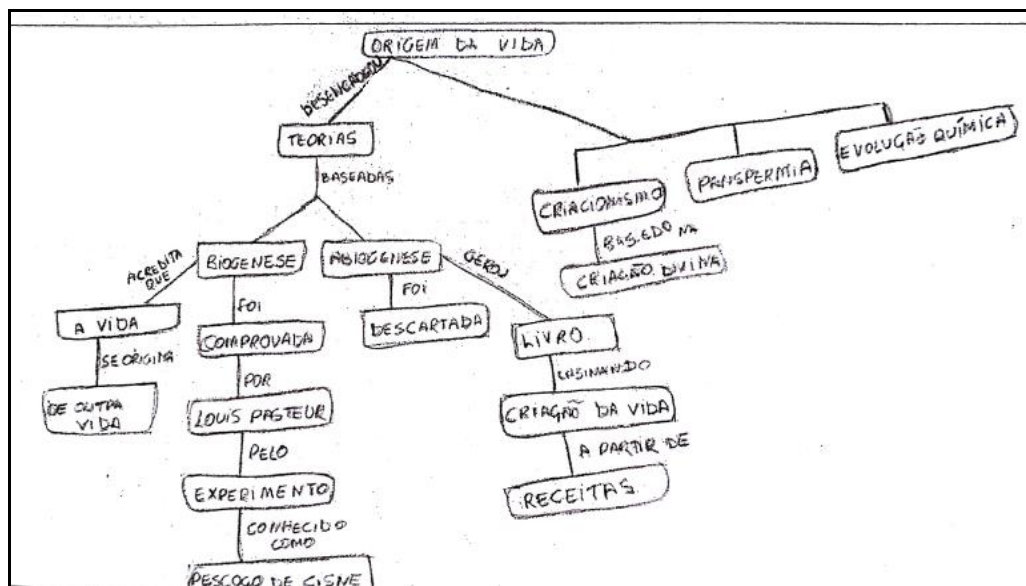 ORIGEM DA VIDA
DESENCADEOU
TEORIAS
BASEADAS
BIOGENESE
ACREDITA
QUE
A VIDA
SE ORIGINA
DE OUTRA
VIDA
FOI
COMPROVADA
POR
LOUIS PASTEUR
PELO
EXPERIMENTO
CONHECIDO
COMO
PESCOÇO DE CISNE
ABIOGENESE
FOI
DESCARTADA
GEROU
LIVRO
ENSINANDO
CRIAÇÃO DA VIDA
A PARTIR DE
RECEITAS
CRIACIONISMO
BASEDO NA
CRIAÇÃO DIVINA
PANSPERMIA
EVOLUÇÃO QUÍMICA